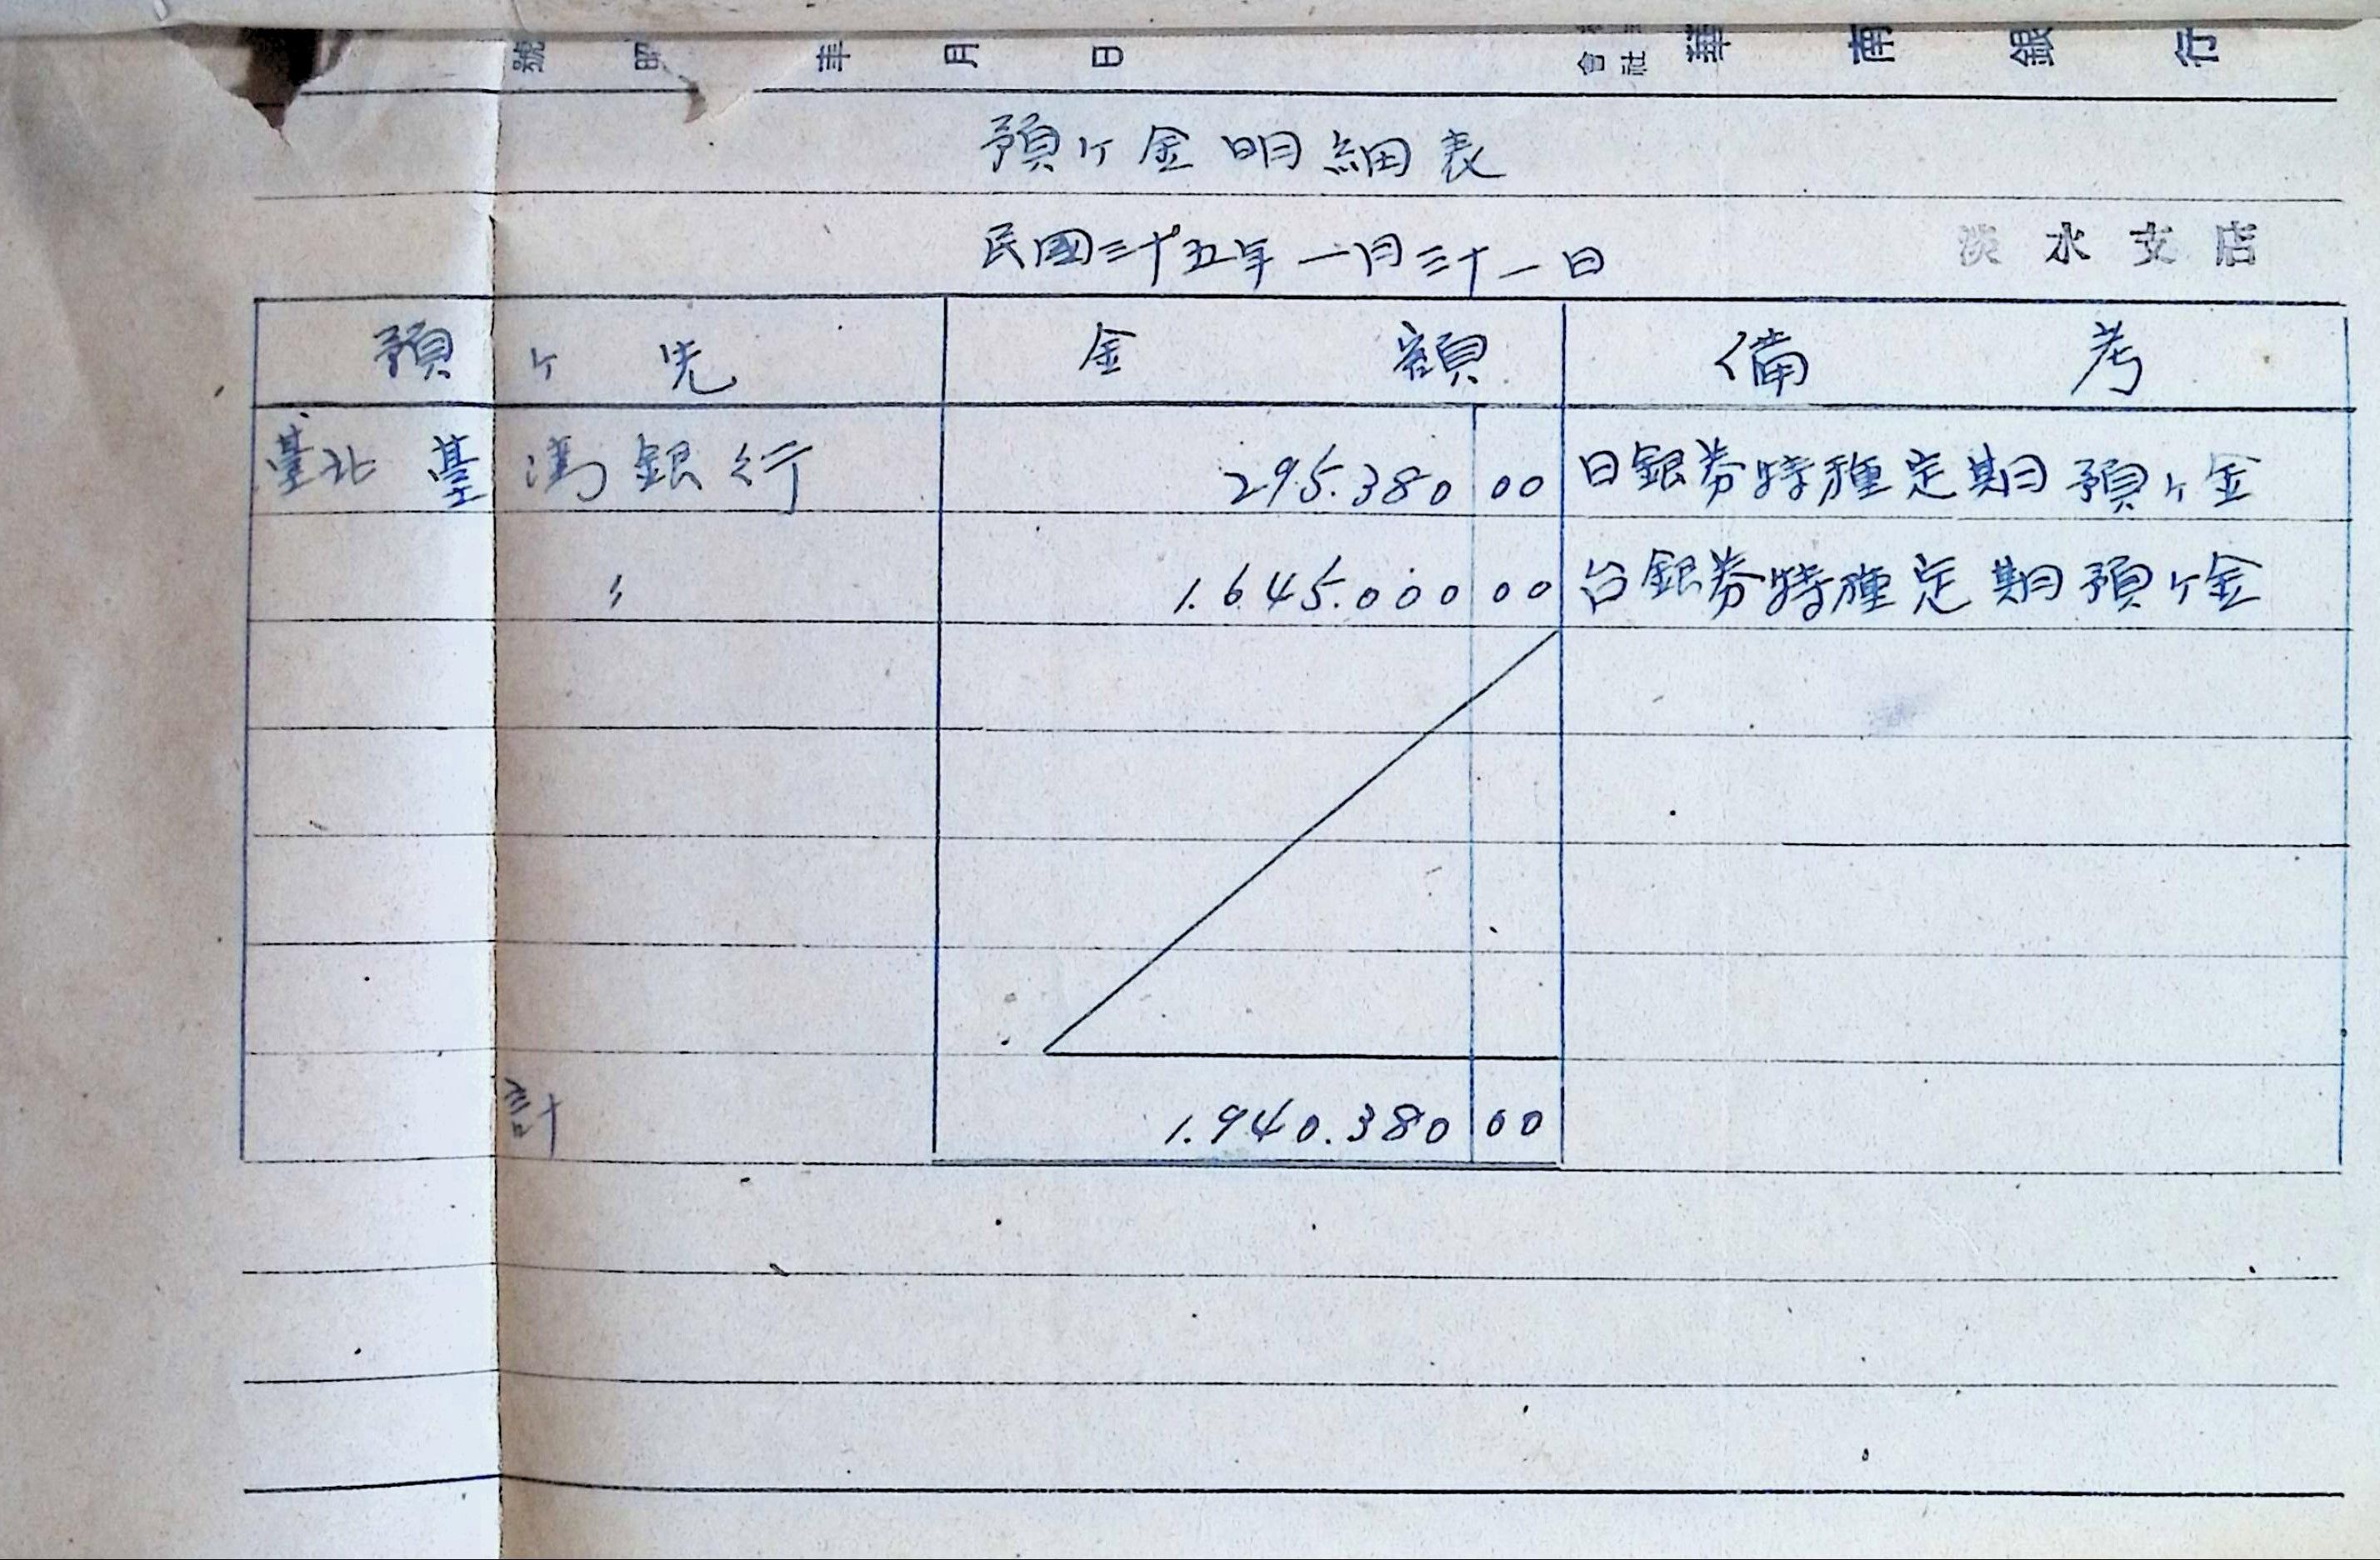 號 昭 年 月 日 會社 華南銀行
預ケ金明細表
民國三十五年一月三十一日 淡水支店
預ケ先 金額 備考
臺北 臺湾銀行 295.380 00 日銀券特種定期預ケ金
〃 1.645.000 00 台銀券特種定期預ケ金
計 1.940.380 00